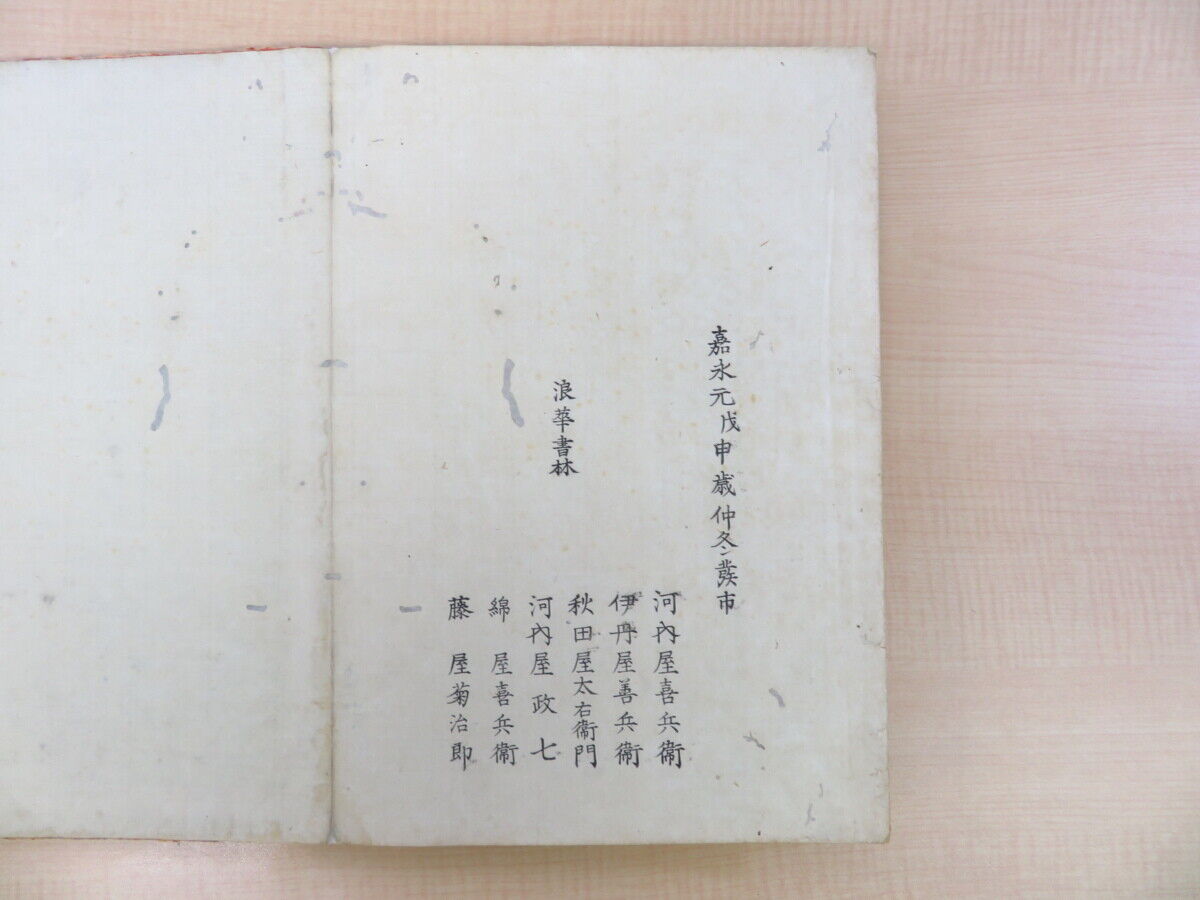 嘉永元戊申歳仲冬發市
浪華書林
河内屋喜兵衞
伊丹屋善兵衞
秋田屋太右衞門
河内屋政七
綿屋喜兵衞
藤屋菊治郎